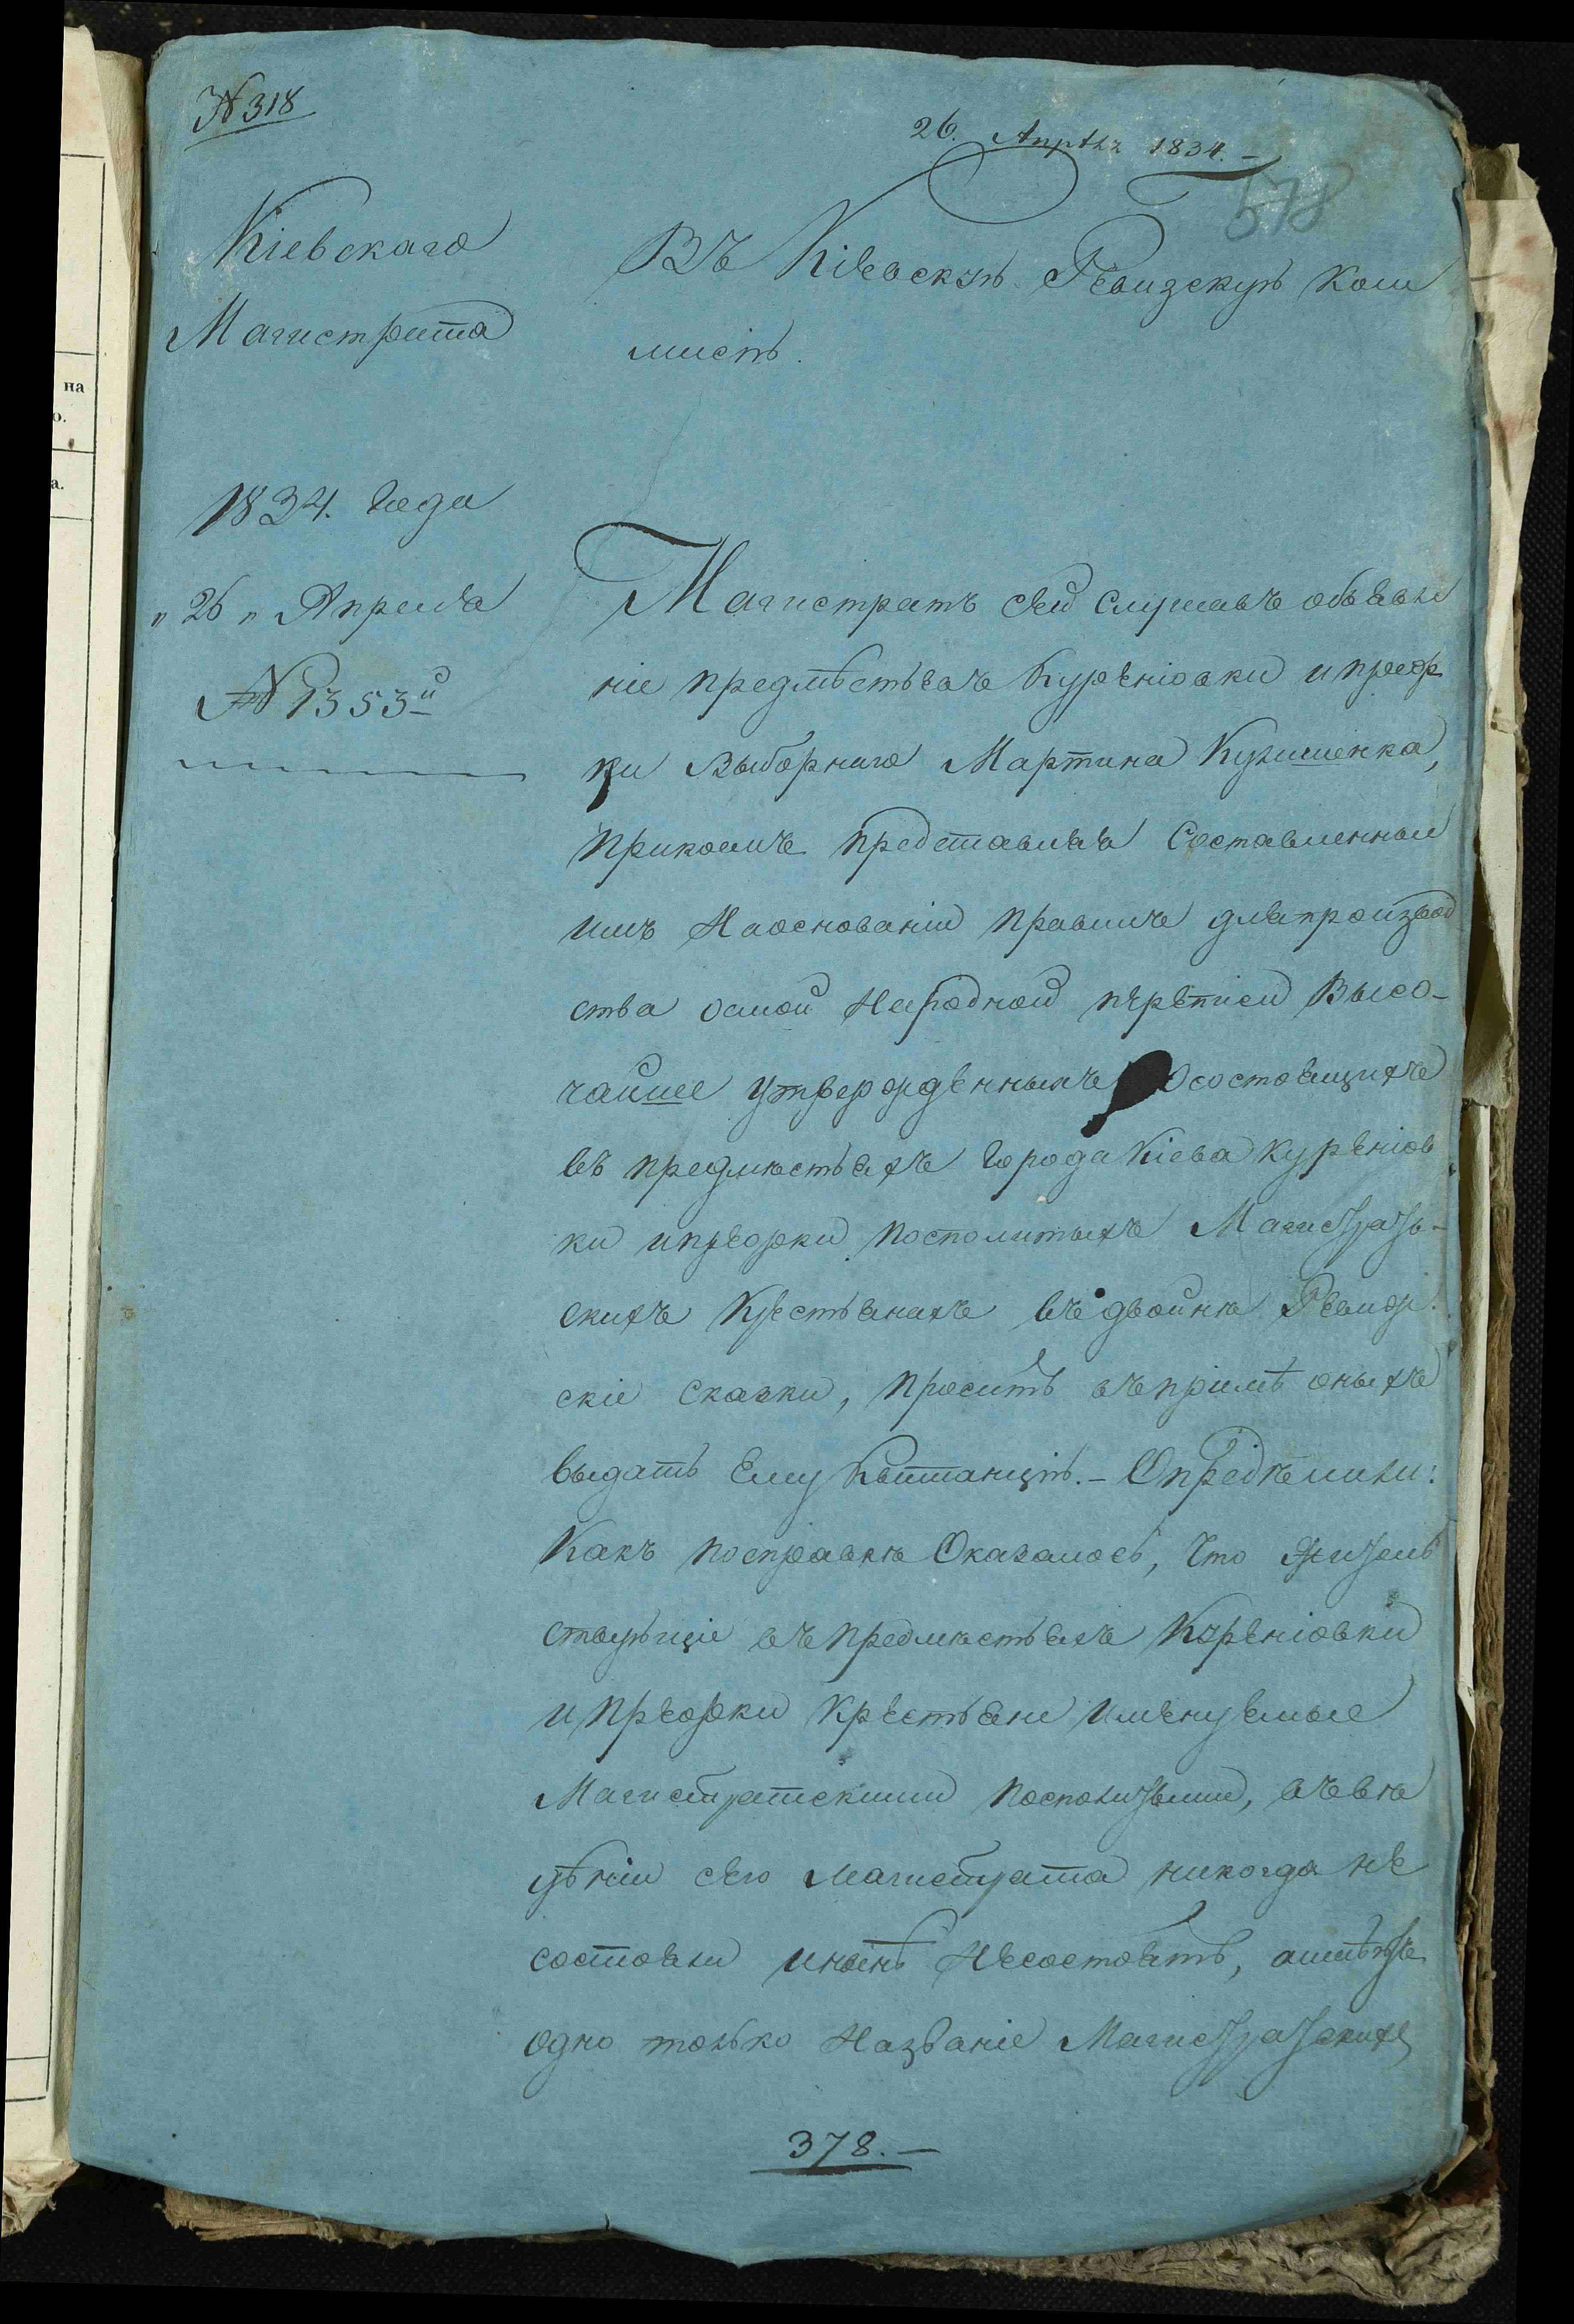 № 318
26. Апрѣля 1834.
578
Кіевскаго
Магистрата
1834. Года
„ 26 „ Апреля
№ 1353й
Въ Кіевскую Ревизскую Ком
мисію.
Магистратъ сей слушавъ объявле
ніе предмѣстьевъ Куреніовки и
ки выборнаго Мартина Кузменка,
прикоемъ представляя составленные
имъ наоснованіи правилъ дляпроизвод
ства осмой народной переписи Высо-
чайшее утвержденныхъ осостоящихъ
въ предмѣстьяхъ города Кіева Куреніов
ки иПреорки посполитыхъ Магистрать-
скихъ крестьянахъ въдвойнѣ Ревиж
скіе сказки, проситъ въпріемѣ оныхъ
выдать ему квитанцію. - Определили:
Какъ посправкѣ оказалось, что жител
ствующіе въпредмѣстьяхъ Куреніовки
и Преорки крестьяне именуемые
Магистратскими посполитыми, въвѣ
деніи сего магистрата никогда не
состояли инынѣ несостоятъ, аимѣютъ
одно только названіе Магистратскихъ
378. -
на
о.
а.